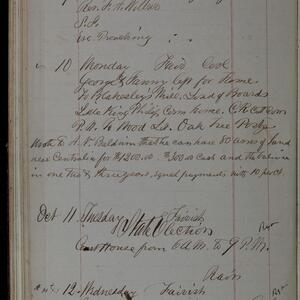 Rev. F. A. Willer
S.S.
Eve. Preaching
10 Monday Fair Cool
George & Fanny left for Home
To Blakesley's Mill, Load of Boards
Lide King Philip Come home.
P.M. To Wood Lot. Oak Tree Posts
Wrote to A. V. Baldwin that he can have 80 acres of land
near Centralia for $1200.00 $300.00 Cash and the balance
in one two & three years, equal payments with 10 per ct.
Oct 11 Tuesday Fairish
State Election
Court House from 6 A.M. to 9 P.M.
Rain
12 Wednesday Fairish